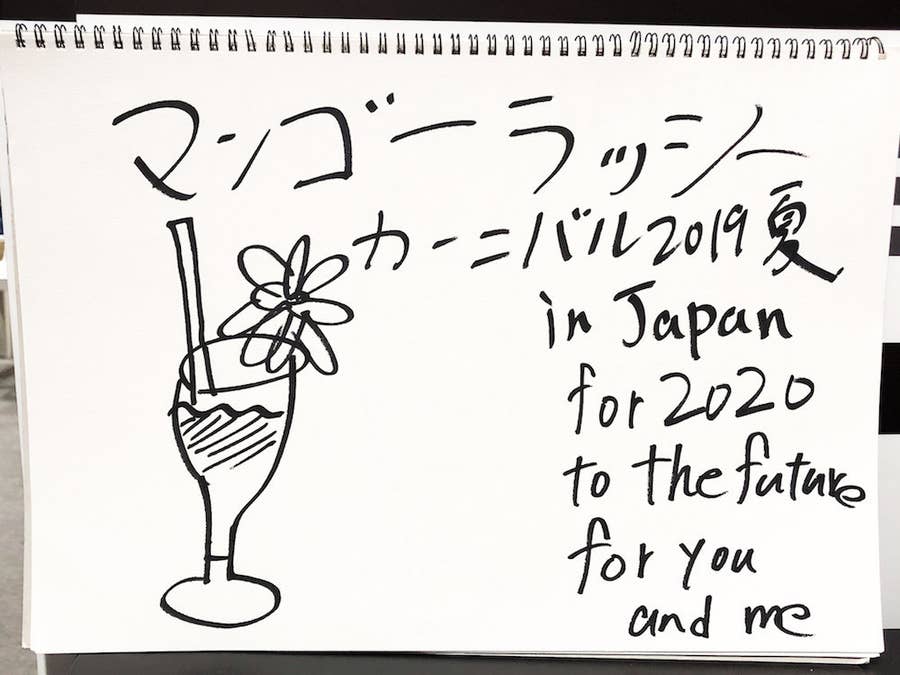 マンゴーラッシー
カーニバル2019夏
in Japan
for 2020
to the future
for you
and me